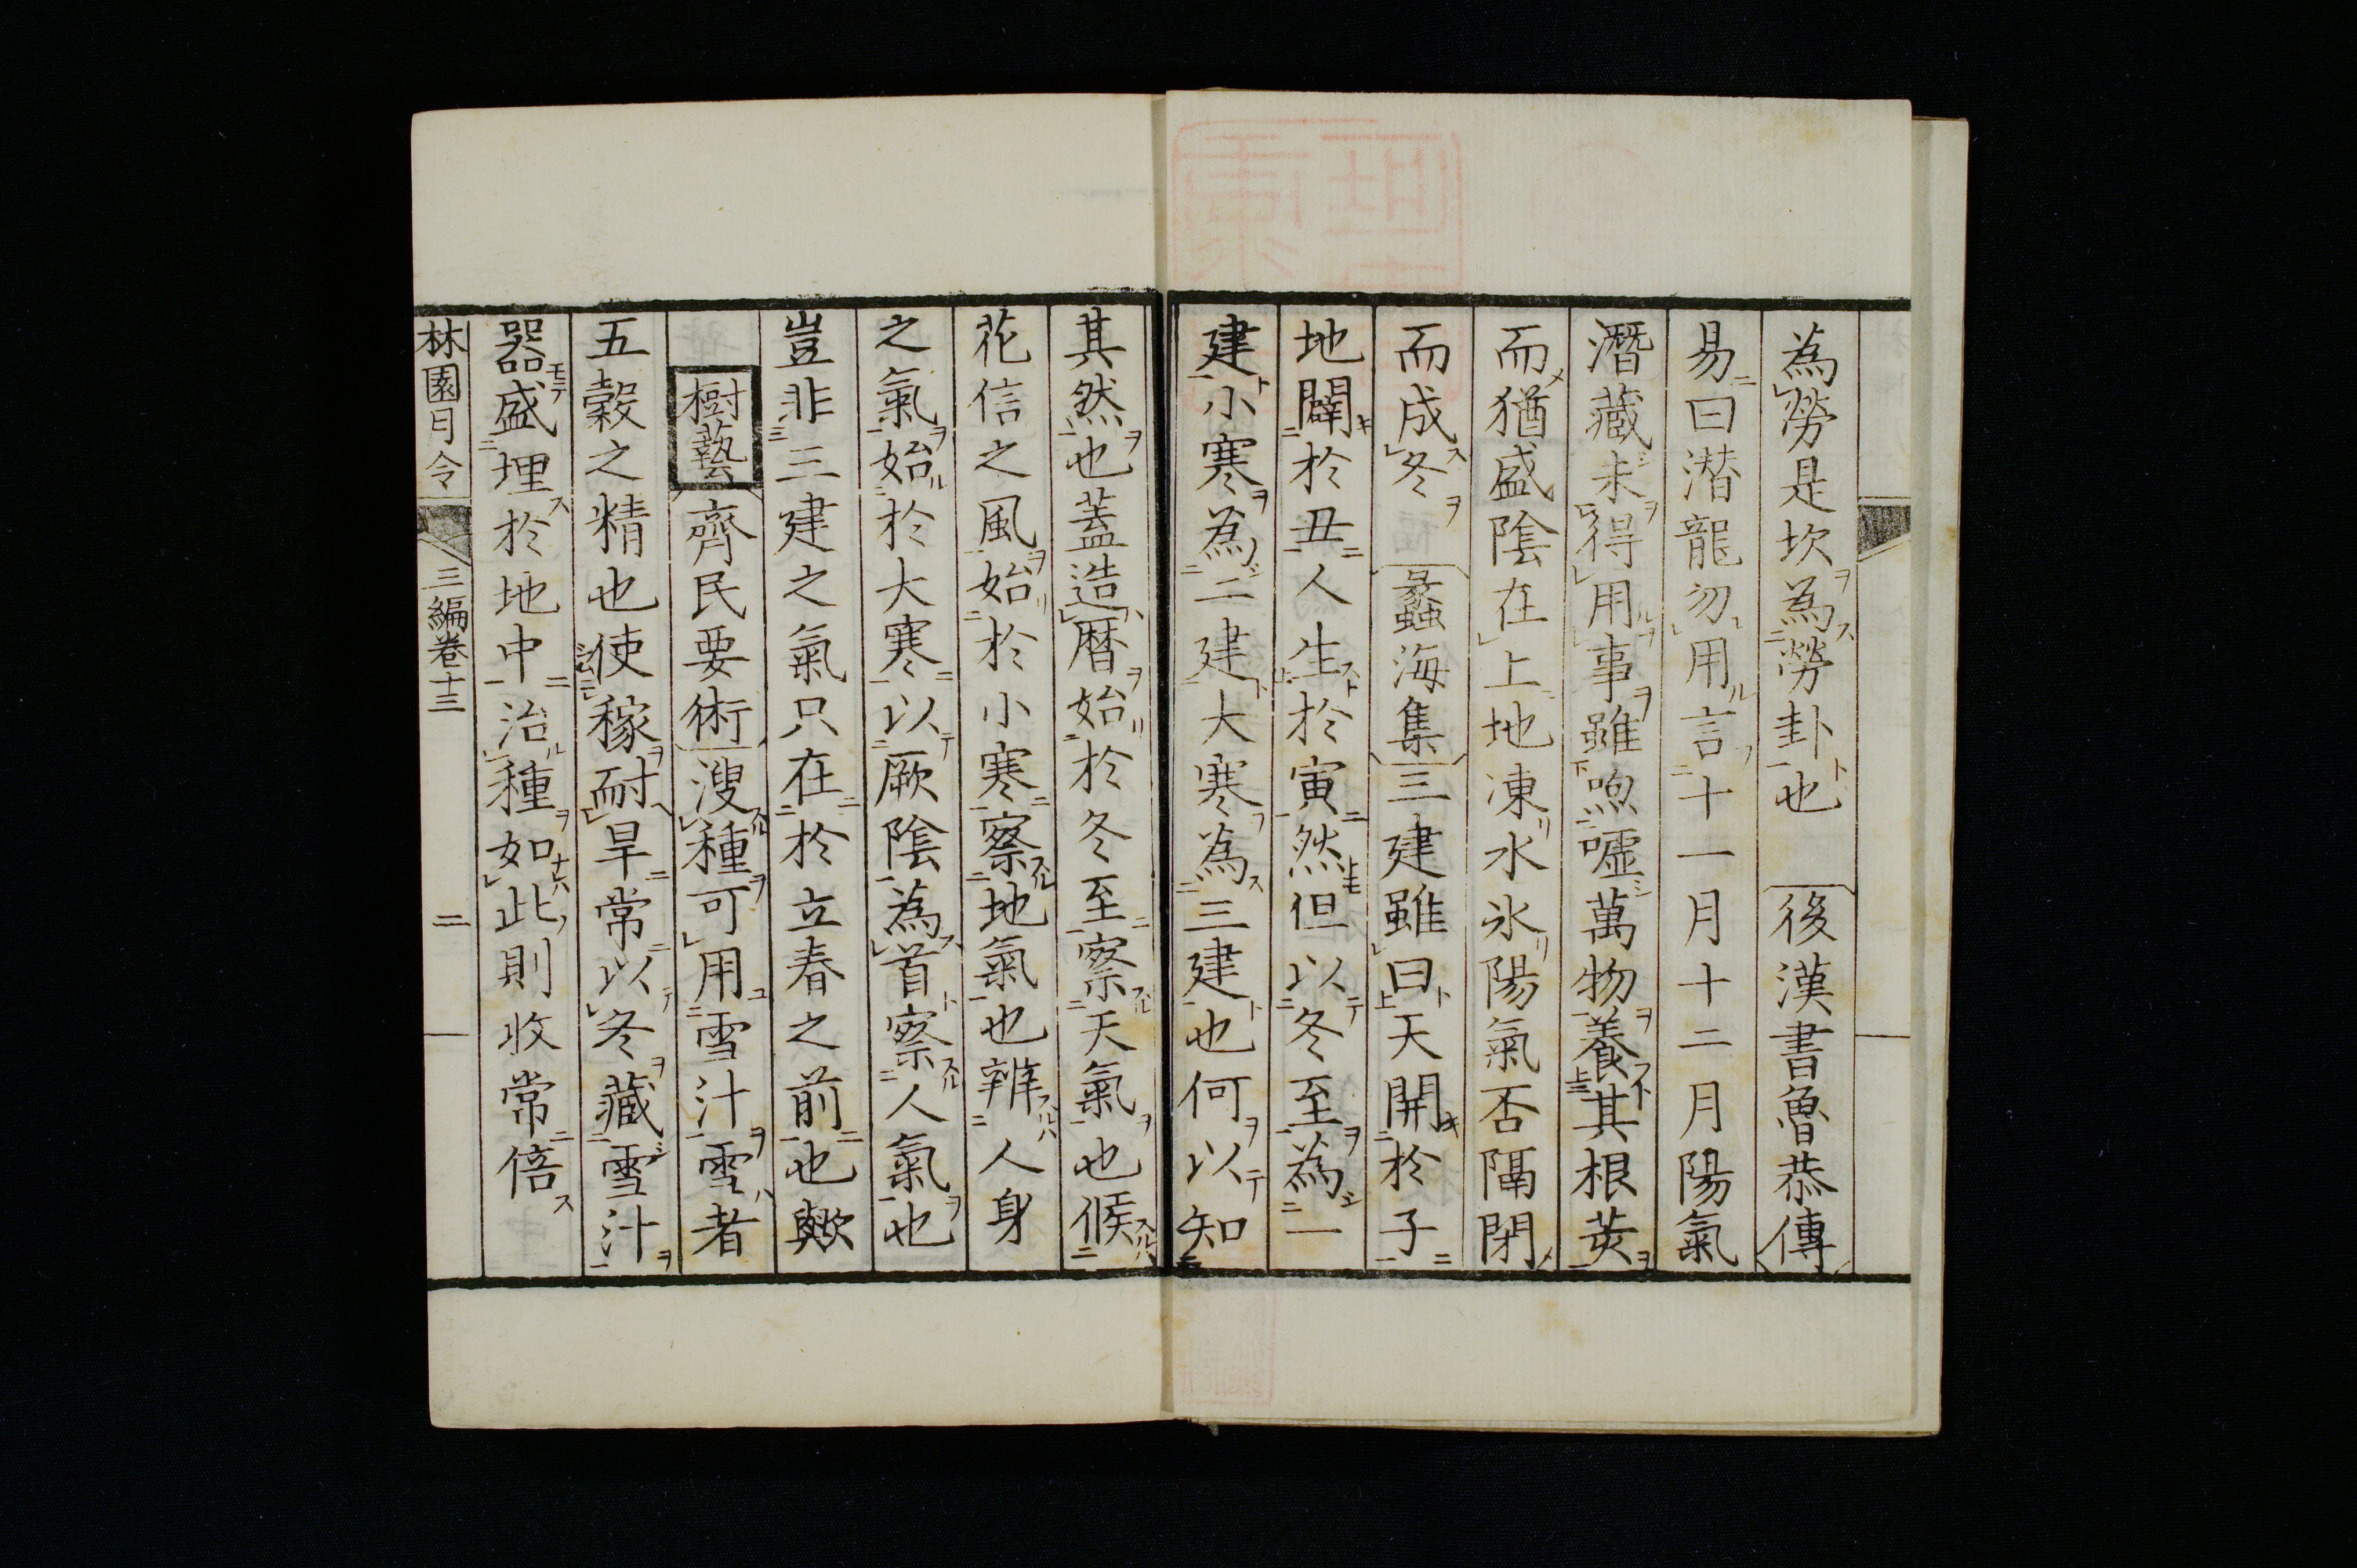 為勞是坎為勞卦也 後漢書魯恭傳
易曰潜龍勿用言十一月十二月陽氣
潛藏未得用事雖喣噓萬物養其根荄
而猶盛陰在上地凍水氷陽氣否隔閉
而成冬 蠡海集 三建雖曰天開於子
地闢於丑人生於寅然但以冬至為一
建小寒為二建大寒為三建也何以知
其然也蓋造曆始於冬至察天氣也候
花信之風始於小寒察地氣也辨人身
之氣始於大寒以厥陰為首察人氣也
豈非三建之氣只在於立春之前也歟
樹藝 齊民要術 溲種可用雪汁雪者
五穀之精也使稼耐旱常以冬藏雪汁
器盛埋於地中治種如此則收常倍
林園月令 三編卷十三 二